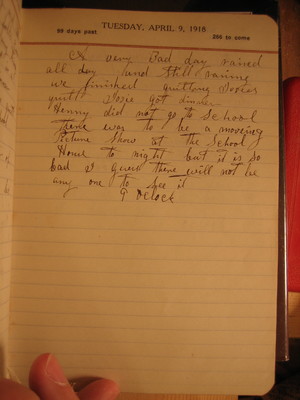 TUESDAY, APRIL 9, 1918
99 days past
266 to come
A very Bad day rained
all day and still raining
we finished quilting Josies
quilt Josie got dinner
Henny did not go to School
There was to be a mooving
Picture Show at the School
House to night but it is so
bad I guess there will not be
any one to see it
9 Oclock